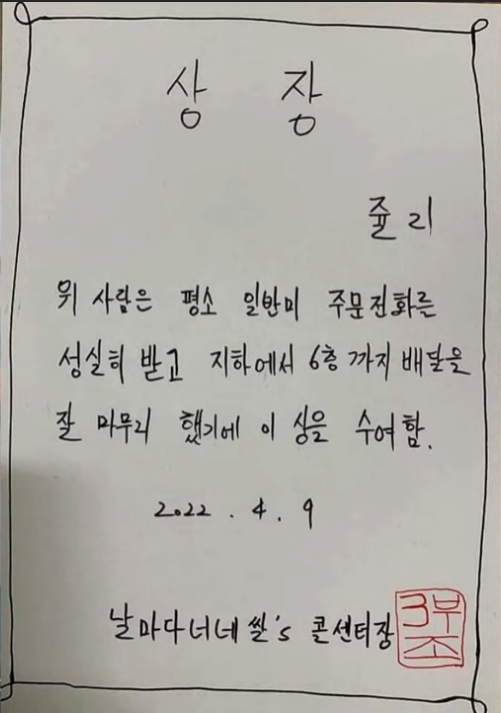 상 장
쥴리
위 사람은 평소 일반미 주문전화를
성실히 받고 지하에서 6층 까지 배달을
잘 마무리 했기에 이 상을 수여함.
2022. 4. 9
날마다너네쌀's 콜센터장
3부
조